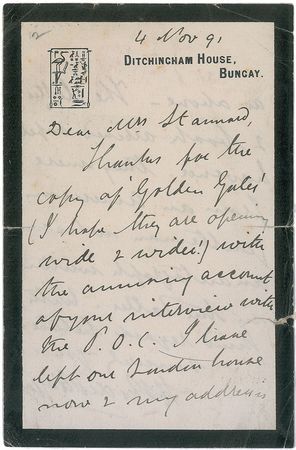 4 Nov 91
DITCHINGHAM HOUSE,
BUNGAY.
Dear Mrs Stannard,
Thanks for the
copy of 'Golden Gates'
(I hope they are opening
wide & wider!) with
the amusing account
of your interview with
the P.O.C. I have
left our London house
now & my address is